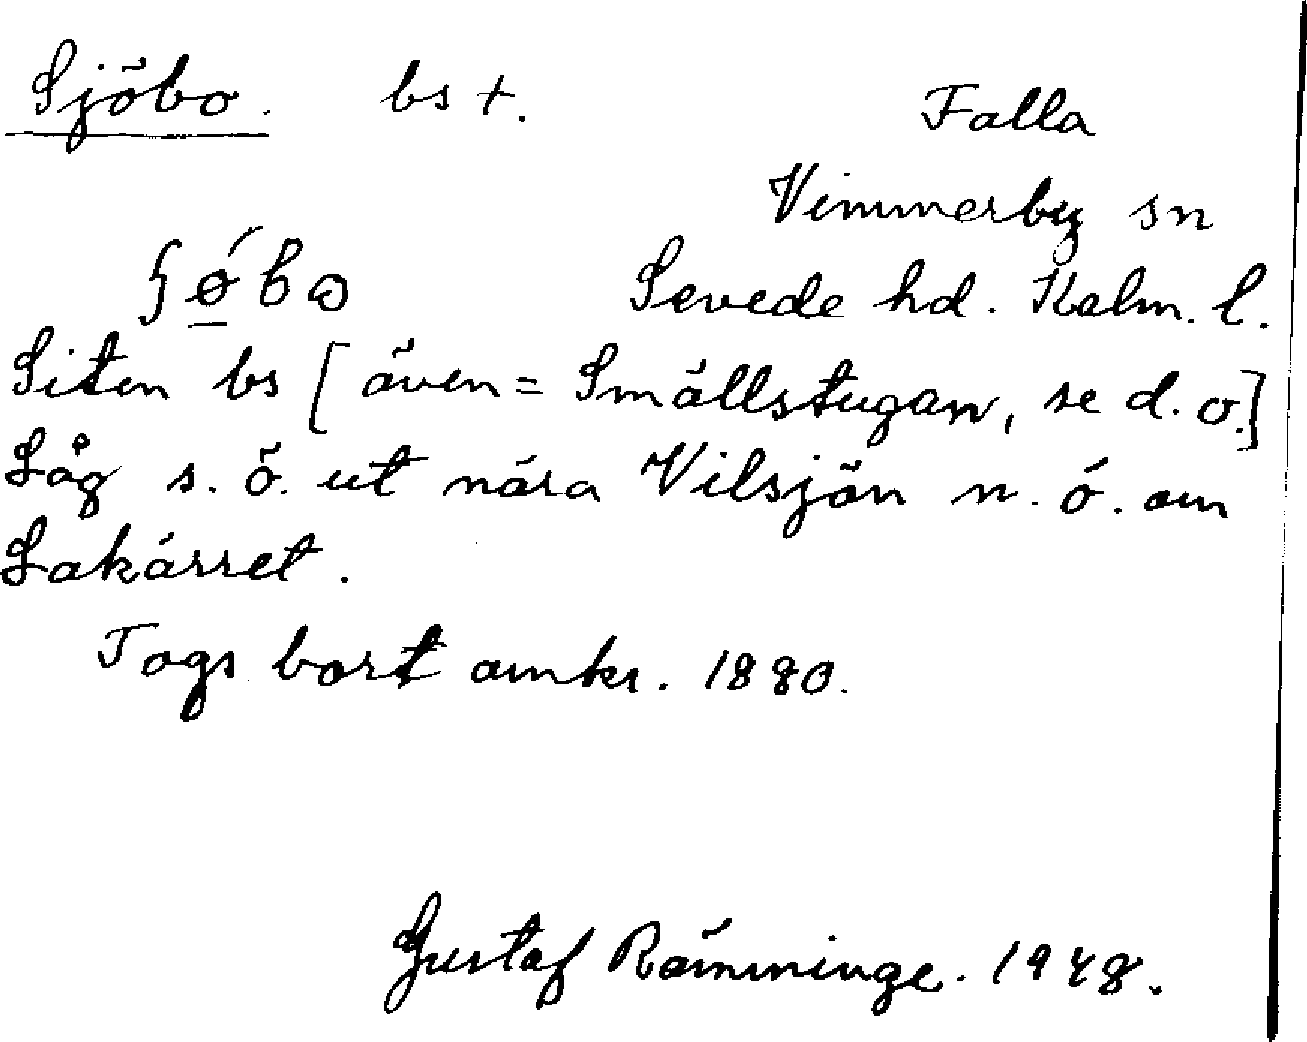 Sjöbo. bs +.
Falla
Vimmerby sn
Sevede hd. Kalm. l.
Liten bs [även = Smällstugan, se d. o.]
Låg s. ö. ut nära Vilsjön n. ö. om
Lakärret.
Togs bort omkr. 1880.
Gustaf Rämminge. 1948.